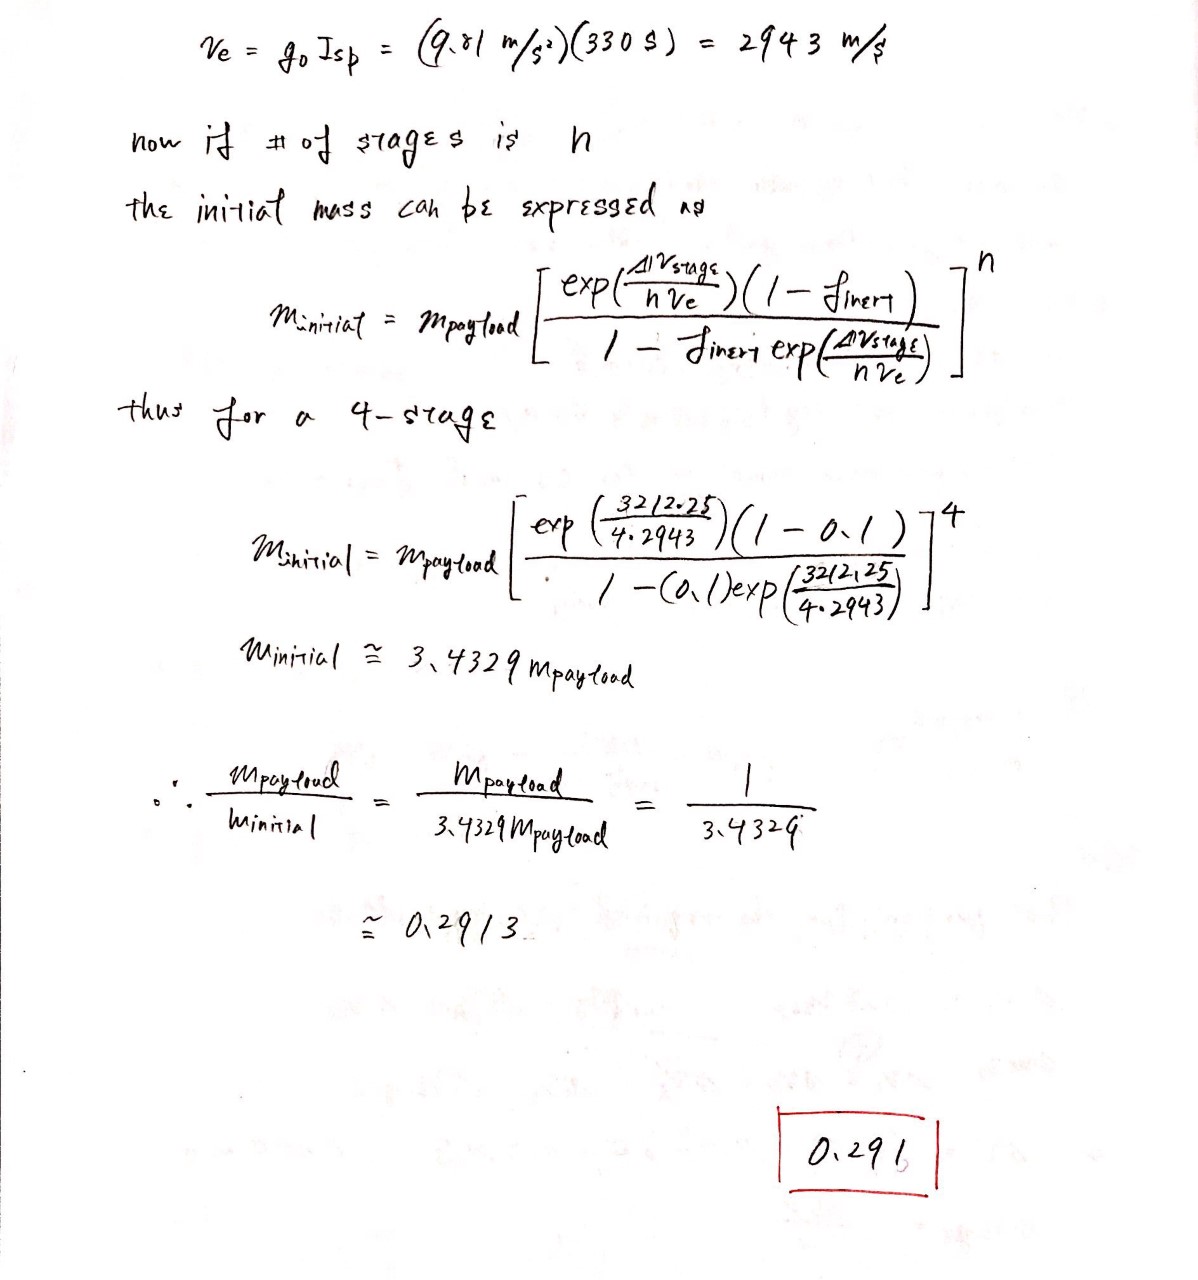 Ve = g₀ Isp = (9.81 m/s²)(330 s) = 2943 m/s
now if # of stages is n
the initial mass can be expressed as
Minitial = Mpayload [ exp(ΔVstage / nVe)(1 − finert) / 1 − finert exp(ΔVstage / nVe) ]ⁿ
thus for a 4-stage
Minitial = Mpayload [ exp(3212.25 / 4·2943)(1 − 0.1) / 1 − (0.1)exp(3212.25 / 4·2943) ]⁴
Minitial ≅ 3.4329 Mpayload
∴ Mpayload / Minitial = Mpayload / 3.4329 Mpayload = 1 / 3.4329
≅ 0.2913
0.291